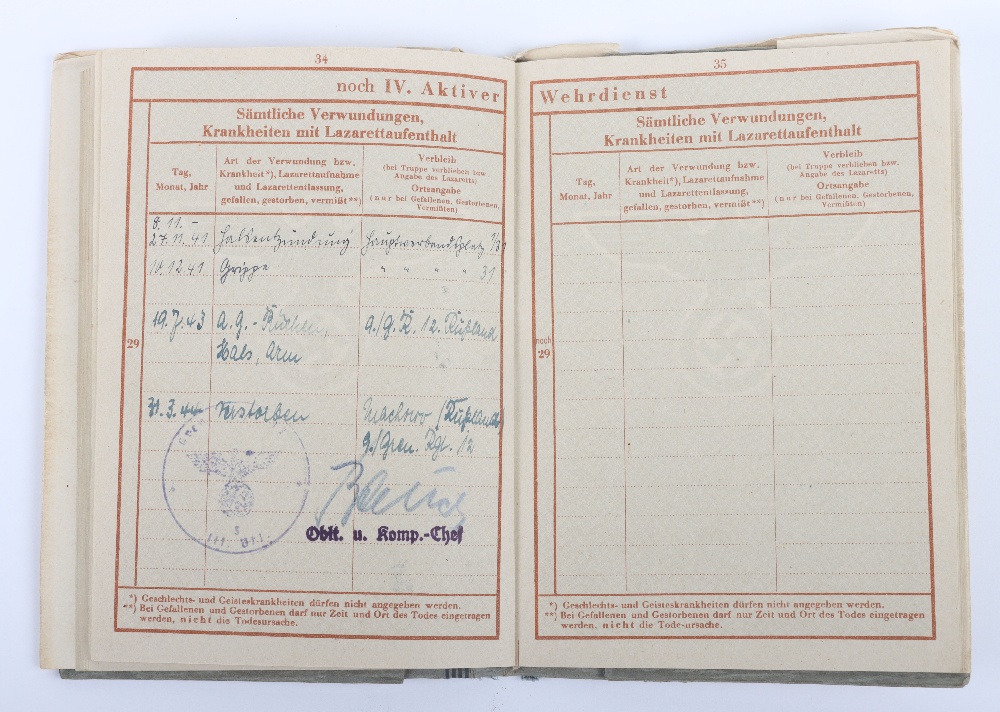 34
noch IV. Aktiver
Sämtliche Verwundungen,
Krankheiten mit Lazarettaufenthalt
Tag,
Monat, Jahr
Art der Verwundung bzw.
Krankheit*), Lazarettaufnahme
und Lazarettentlassung,
gefallen, gestorben, vermißt**)
Verbleib
(bei Truppe verblieben bzw.
Angabe des Lazaretts)
Ortsangabe
(nur bei Gefallenen, Gestorbenen,
Vermißten)
8.11. –
27.11.41 Halsentzündung Hauptverbandsplatz 1/31
10.12.41 Grippe " " " " 31
29
19.7.43 A.G.-Rücken,
Hals, Arm
9./G.R. 12. Rußland
31.3.44 Verstorben
/Rußland
9./Gren. Rgt. 12
Oblt. u. Komp.-Chef
*) Geschlechts- und Geisteskrankheiten dürfen nicht angegeben werden.
**) Bei Gefallenen und Gestorbenen darf nur Zeit und Ort des Todes eingetragen
werden, nicht die Todesursache.
35
Wehrdienst
Sämtliche Verwundungen,
Krankheiten mit Lazarettaufenthalt
Tag,
Monat, Jahr
Art der Verwundung bzw.
Krankheit*), Lazarettaufnahme
und Lazarettentlassung,
gefallen, gestorben, vermißt**)
Verbleib
(bei Truppe verblieben bzw.
Angabe des Lazaretts)
Ortsangabe
(nur bei Gefallenen, Gestorbenen,
Vermißten)
noch
29
*) Geschlechts- und Geisteskrankheiten dürfen nicht angegeben werden.
**) Bei Gefallenen und Gestorbenen darf nur Zeit und Ort des Todes eingetragen
werden, nicht die Todesursache.